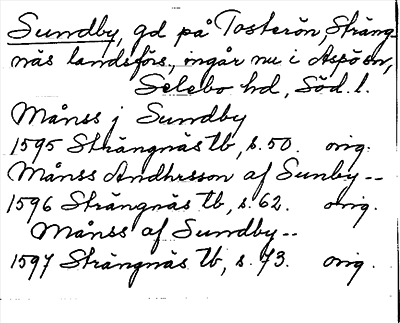 Sundby, gd på Tosterön, Sträng-
näs landsförs., ingår nu i Aspöon,
Selebo hd, Söd. l.
Månss j Sundby
1595 Strängnäs tb, s. 50. orig.
Månss Andhrsson af Sunby--
1596 Strängnäs tb, s. 62. orig.
Månss af Sundby--
1597 Strängnäs tb, s. 73. orig.